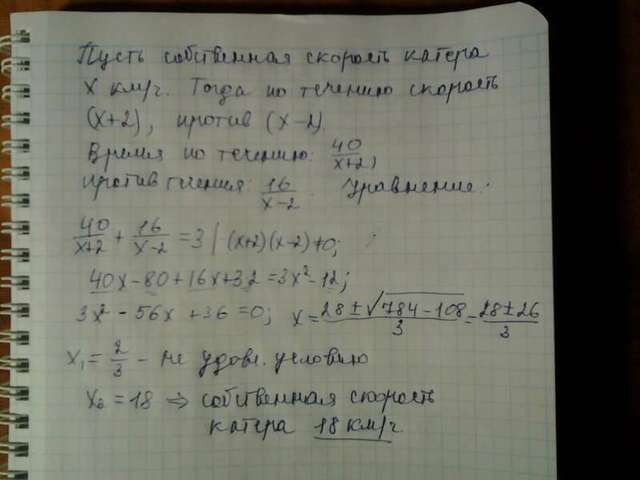 Пусть собственная скорость катера
x км/ч. Тогда по течению скорость
(x+2), против (x-2).
Время по течению: 40/(x+2),
против течения: 16/(x-2). Уравнение:
40/(x+2) + 16/(x-2) = 3 | (x+2)(x-2)≠0;
40x-80+16x+32=3x²-12;
3x²-56x+36=0; x=(28±√(784-108))/3=(28±26)/3
x₁=2/3 - не удовл. условию
x₂=18 ⇒ собственная скорость
катера 18 км/ч